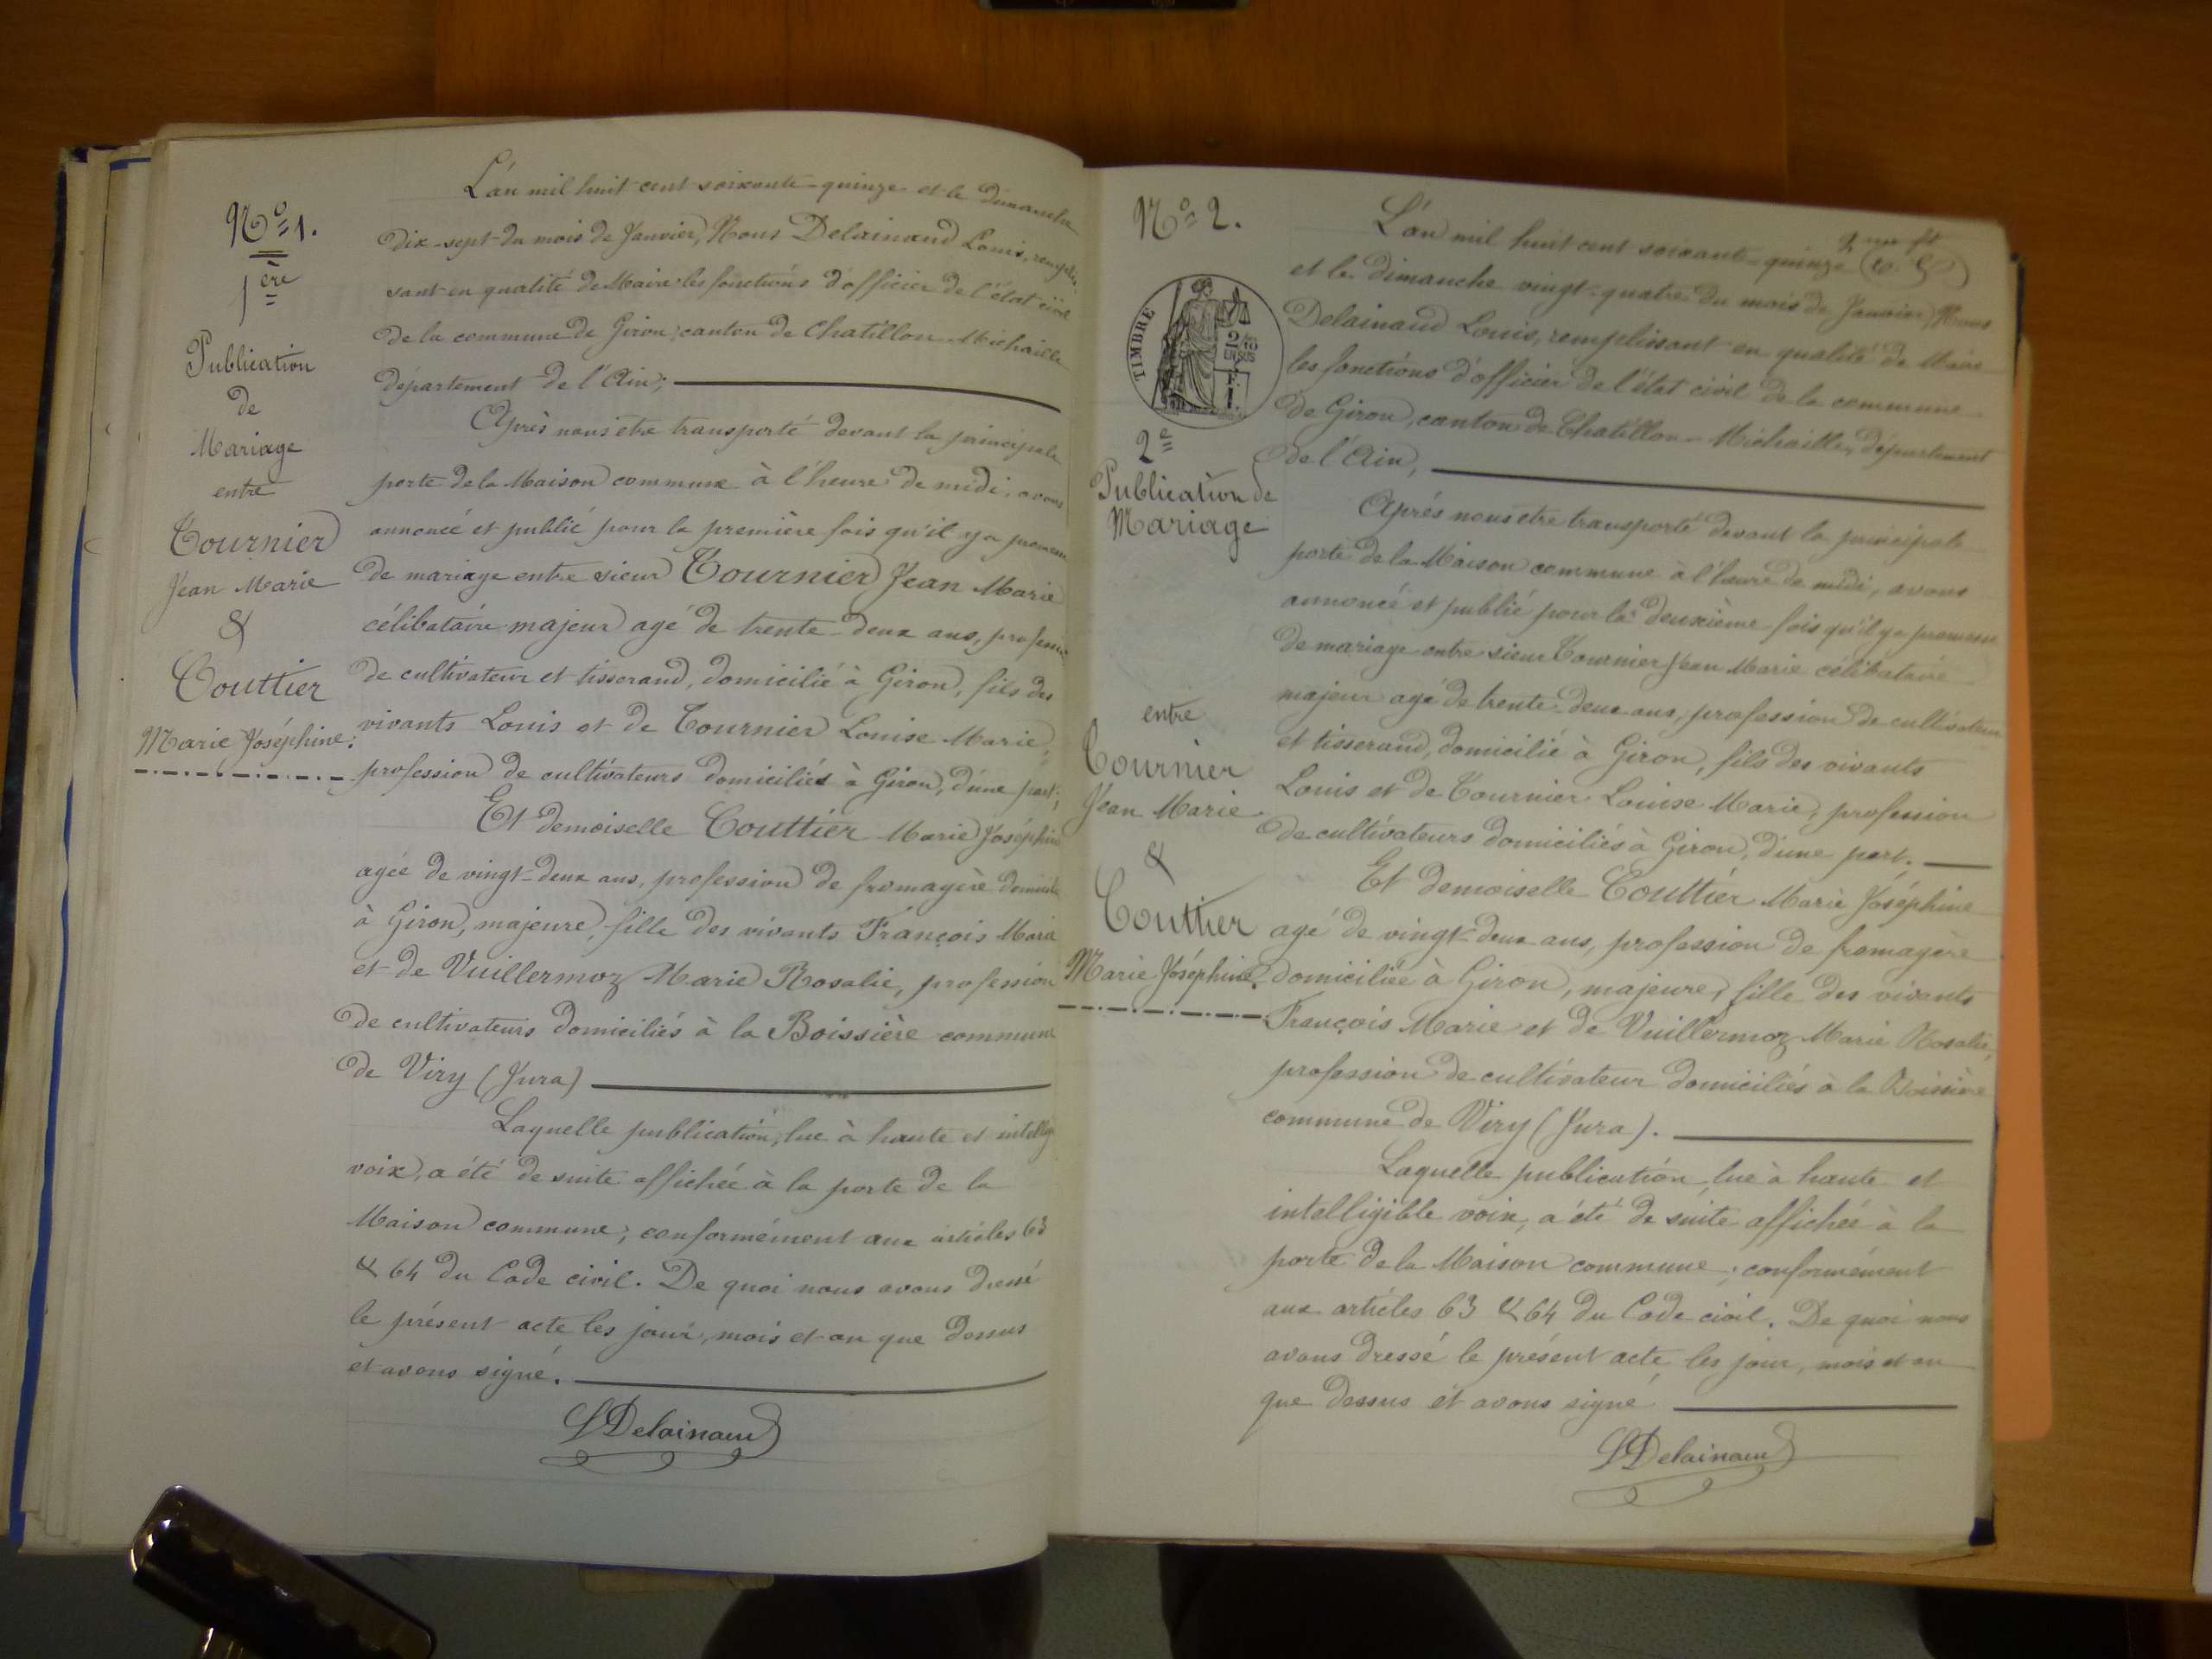 Nº 1.
1ère
Publication
de
Mariage
entre
Tournier
Jean Marie
&
Couttier
Marie Joséphine.
L'an mil huit cent soixante-quinze et le dimanche
dix-sept du mois de Janvier, Nous Delainaud Louis, remplis-
sant en qualité de Maire les fonctions d'officier de l'état civil
de la commune de Giron, canton de Chatillon-Michaille
département de l'Ain;
Après nous être transporté devant la principale
porte de la Maison commune à l'heure de midi, avons
annoncé et publié pour la première fois qu'il y a promesse
de mariage entre sieur Tournier Jean Marie
célibataire majeur agé de trente-deux ans, profession
de cultivateur et tisserand, domicilié à Giron, fils des
vivants Louis et de Tournier Louise Marie,
profession de cultivateurs domiciliés à Giron, d'une part;
Et demoiselle Couttier Marie Joséphine
agée de vingt-deux ans, profession de fromagère domiciliée
à Giron, majeure, fille des vivants François Marie
et de Vuillermoz Marie Rosalie, profession
de cultivateurs domiciliés à la Boissière commune
de Viry (Jura)
Laquelle publication, lue à haute et intellig
voix, a été de suite affichée à la porte de la
Maison commune; conformément aux articles 63
& 64 du Code civil. De quoi nous avons dressé
le présent acte les jour, mois et an que dessus
et avons signé.
LDelainaud
Nº 2.
TIMBRE
2/10
EN SUS
2e
Publication de
Mariage
entre
Tournier
Jean Marie
&
Couttier
Marie Joséphine.
L'an mil huit cent soixante-quinze
et le dimanche vingt-quatre du mois de Janvier, Nous
Delainaud Louis, remplissant en qualité de Maire
les fonctions d'officier de l'état civil de la commune
de Giron, canton de Chatillon-Michaille, département
de l'Ain,
Après nous être transporté devant la principale
porte de la Maison commune à l'heure de midi, avons
annoncé et publié pour la deuxième fois qu'il y a promesse
de mariage entre sieur Tournier Jean Marie célibataire
majeur agé de trente-deux ans, profession de cultivateur
et tisserand, domicilié à Giron, fils des vivants
Louis et de Tournier Louise Marie, profession
de cultivateurs domiciliés à Giron, d'une part.
Et demoiselle Couttier Marie Joséphine
agé de vingt-deux ans, profession de fromagère
domiciliée à Giron, majeure, fille des vivants
François Marie et de Vuillermoz Marie Rosalie,
profession de cultivateur domiciliés à la Boissière
commune de Viry (Jura).
Laquelle publication lue à haute et
intelligible voix, a été de suite affichée à la
porte de la Maison commune; conformément
aux articles 63 & 64 du Code civil. De quoi nous
avons dressé le présent acte, les jour, mois et an
que dessus et avons signé
LDelainaud